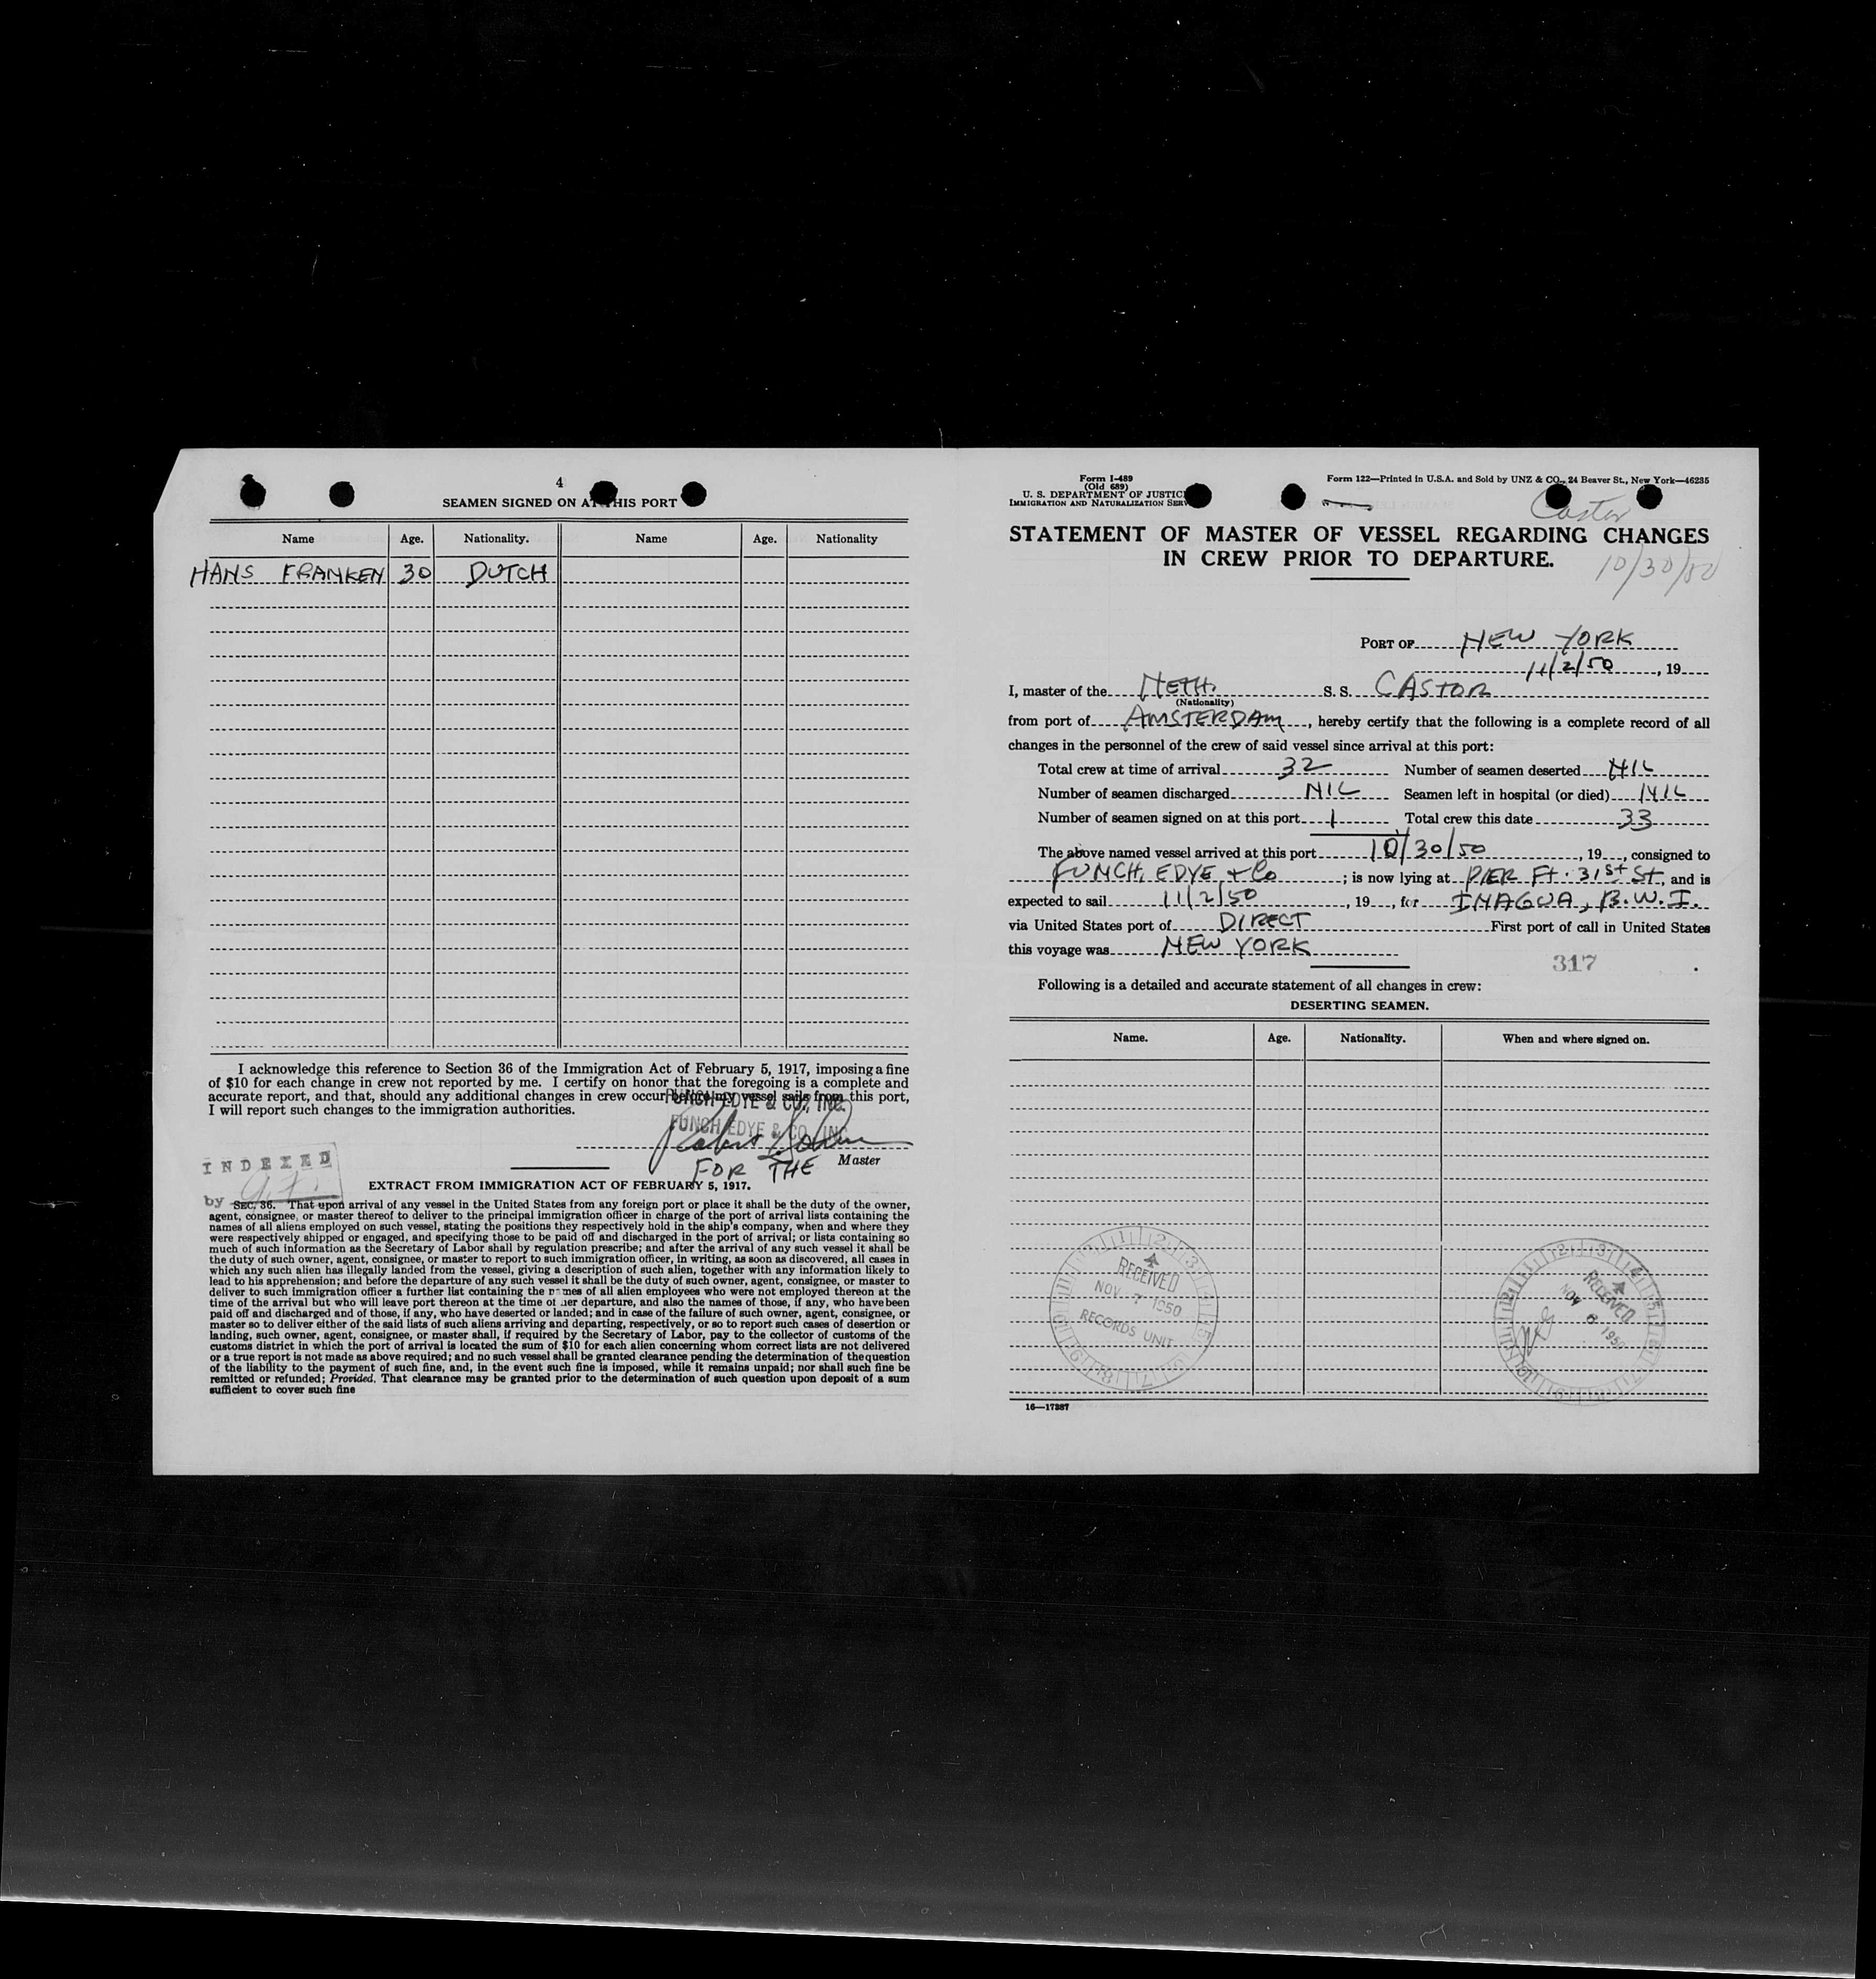 4
SEAMEN SIGNED ON AT THIS PORT
Name Age. Nationality. Name Age. Nationality
HANS FRANKEN 30 DUTCH
I acknowledge this reference to Section 36 of the Immigration Act of February 5, 1917, imposing a fine
of $10 for each change in crew not reported by me. I certify on honor that the foregoing is a complete and
accurate report, and that, should any additional changes in crew occur before my vessel sails from this port,
I will report such changes to the immigration authorities.
FUNCH EDYE & CO., INC.
FUNCH EDYE & CO., INC.
FOR THE Master
INDEXED
by
EXTRACT FROM IMMIGRATION ACT OF FEBRUARY 5, 1917.
SEC. 36. That upon arrival of any vessel in the United States from any foreign port or place it shall be the duty of the owner,
agent, consignee, or master thereof to deliver to the principal immigration officer in charge of the port of arrival lists containing the
names of all aliens employed on such vessel, stating the positions they respectively hold in the ship's company, when and where they
were respectively shipped or engaged, and specifying those to be paid off and discharged in the port of arrival; or lists containing so
much of such information as the Secretary of Labor shall by regulation prescribe; and after the arrival of any such vessel it shall be
the duty of such owner, agent, consignee, or master to report to such immigration officer, in writing, as soon as discovered, all cases in
which any such alien has illegally landed from the vessel, giving a description of such alien, together with any information likely to
lead to his apprehension; and before the departure of any such vessel it shall be the duty of such owner, agent, consignee, or master to
deliver to such immigration officer a further list containing the names of all alien employees who were not employed thereon at the
time of the arrival but who will leave port thereon at the time of her departure, and also the names of those, if any, who have been
paid off and discharged and of those, if any, who have deserted or landed; and in case of the failure of such owner, agent, consignee, or
master so to deliver either of the said lists of such aliens arriving and departing, respectively, or so to report such cases of desertion or
landing, such owner, agent, consignee, or master shall, if required by the Secretary of Labor, pay to the collector of customs of the
customs district in which the port of arrival is located the sum of $10 for each alien concerning whom correct lists are not delivered
or a true report is not made as above required; and no such vessel shall be granted clearance pending the determination of the question
of the liability to the payment of such fine, and, in the event such fine is imposed, while it remains unpaid; nor shall such fine be
remitted or refunded; Provided, That clearance may be granted prior to the determination of such question upon deposit of a sum
sufficient to cover such fine
Form I-489
(Old 689)
U. S. DEPARTMENT OF JUSTICE
IMMIGRATION AND NATURALIZATION SERV
Form 122—Printed in U.S.A. and Sold by UNZ & CO., 24 Beaver St., New York—46235
Castor
STATEMENT OF MASTER OF VESSEL REGARDING CHANGES
IN CREW PRIOR TO DEPARTURE.
10/30/50
PORT OF NEW YORK
11/2/50, 19
I, master of the NETH. S. S. CASTOR
(Nationality)
from port of AMSTERDAM, hereby certify that the following is a complete record of all
changes in the personnel of the crew of said vessel since arrival at this port:
Total crew at time of arrival 32 Number of seamen deserted NIL
Number of seamen discharged NIL Seamen left in hospital (or died) NIL
Number of seamen signed on at this port 1 Total crew this date 33
The above named vessel arrived at this port 10/30/50, 19, consigned to
FUNCH, EDYE + Co; is now lying at PIER Ft. 31st St, and is
expected to sail 11/2/50, 19, for INAGUA, B.W.I.
via United States port of DIRECT First port of call in United States
this voyage was NEW YORK
317
Following is a detailed and accurate statement of all changes in crew:
DESERTING SEAMEN.
Name. Age. Nationality. When and where signed on.
RECEIVED
NOV 7 1950
RECORDS UNIT
RECEIVED
NOV 6 1950
16—17387